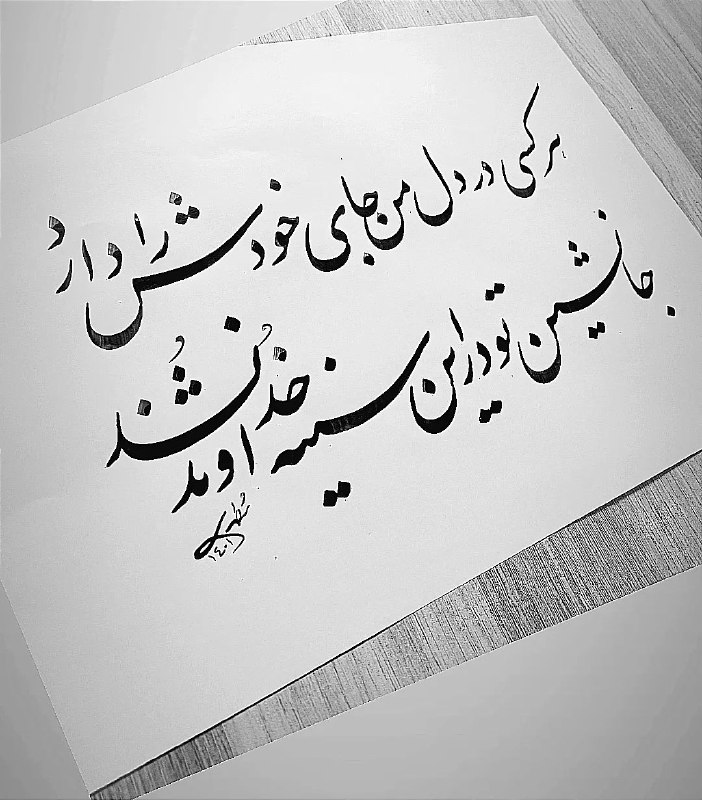 هر کسی در دل من جای خودش را دارد
جانشین تو در این سینه خداوند نشُد
۱۴۰۱